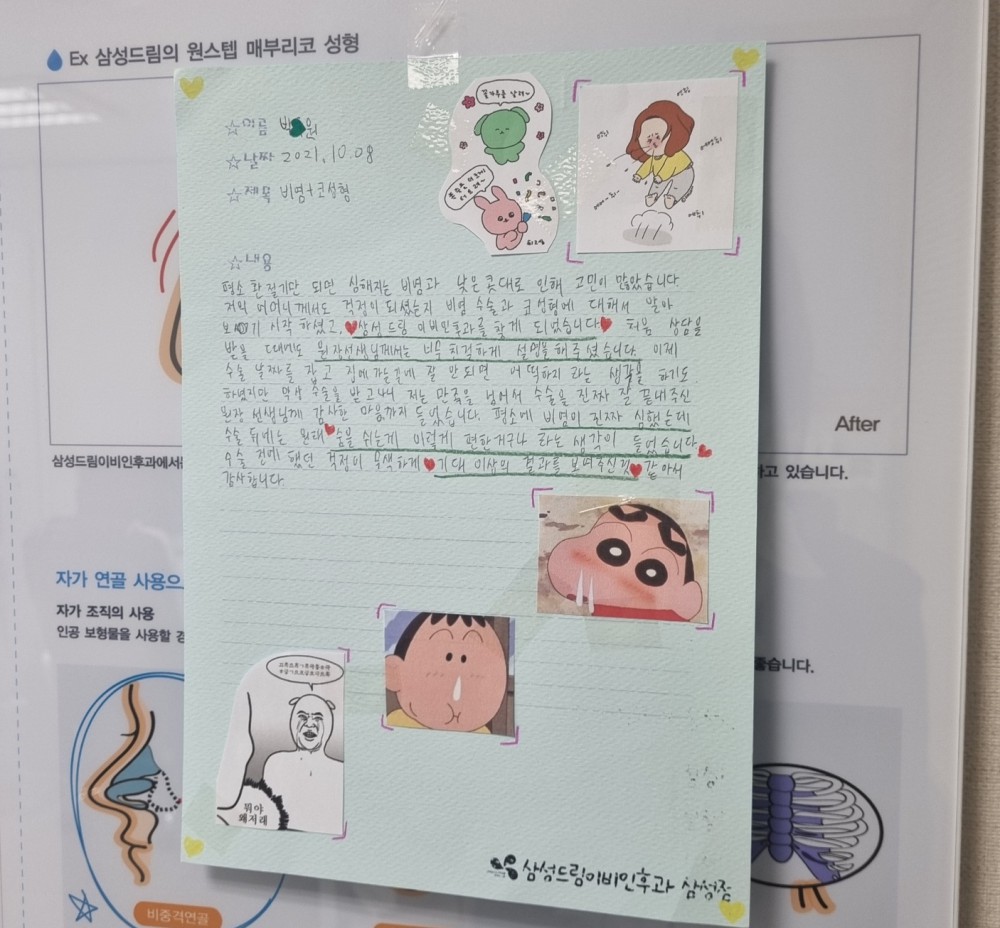 Ex 삼성드림의 원스텝 매부리코 성형
☆이름 박 원
☆날짜 2021.10.08
☆제목 비염+코성형
☆내용
평소 환절기만 되면 심해지는 비염과 낮은 콧대로 인해 고민이 많았습니다
저희 어머니께서도 걱정이 되셨는지 비염 수술과 코성형에 대해서 알아
보기 시작 하셨고, 삼성드림 이비인후과를 찾게 되었습니다 처음 상담을
받을 때에도 원장선생님께서는 너무 친절하게 설명을 해주셨습니다. 이제
수술 날짜를 잡고 집에 가는길에 잘 안되면 어떡하지 라는 생각을 하기도
하였지만 막상 수술을 받고나니 저는 만족을 넘어서 수술을 진짜 잘 끝내주신
원장 선생님께 감사한 마음까지 들었습니다. 평소에 비염이 진짜 심했는데
수술 뒤에는 원래 숨을 쉬는게 이렇게 편한거구나 라는 생각이 들었습니다
수술 전에 했던 걱정이 무색하게 기대 이상의 결과를 보여주신것 같아서
감사합니다
After
삼성드림이비인후과에서는
하고 있습니다.
자가 연골 사용으
자가 조직의 사용
인공 보형물을 사용할 경
좋습니다.
뭐야
왜저래
비중격연골
삼성드림이비인후과 삼성점